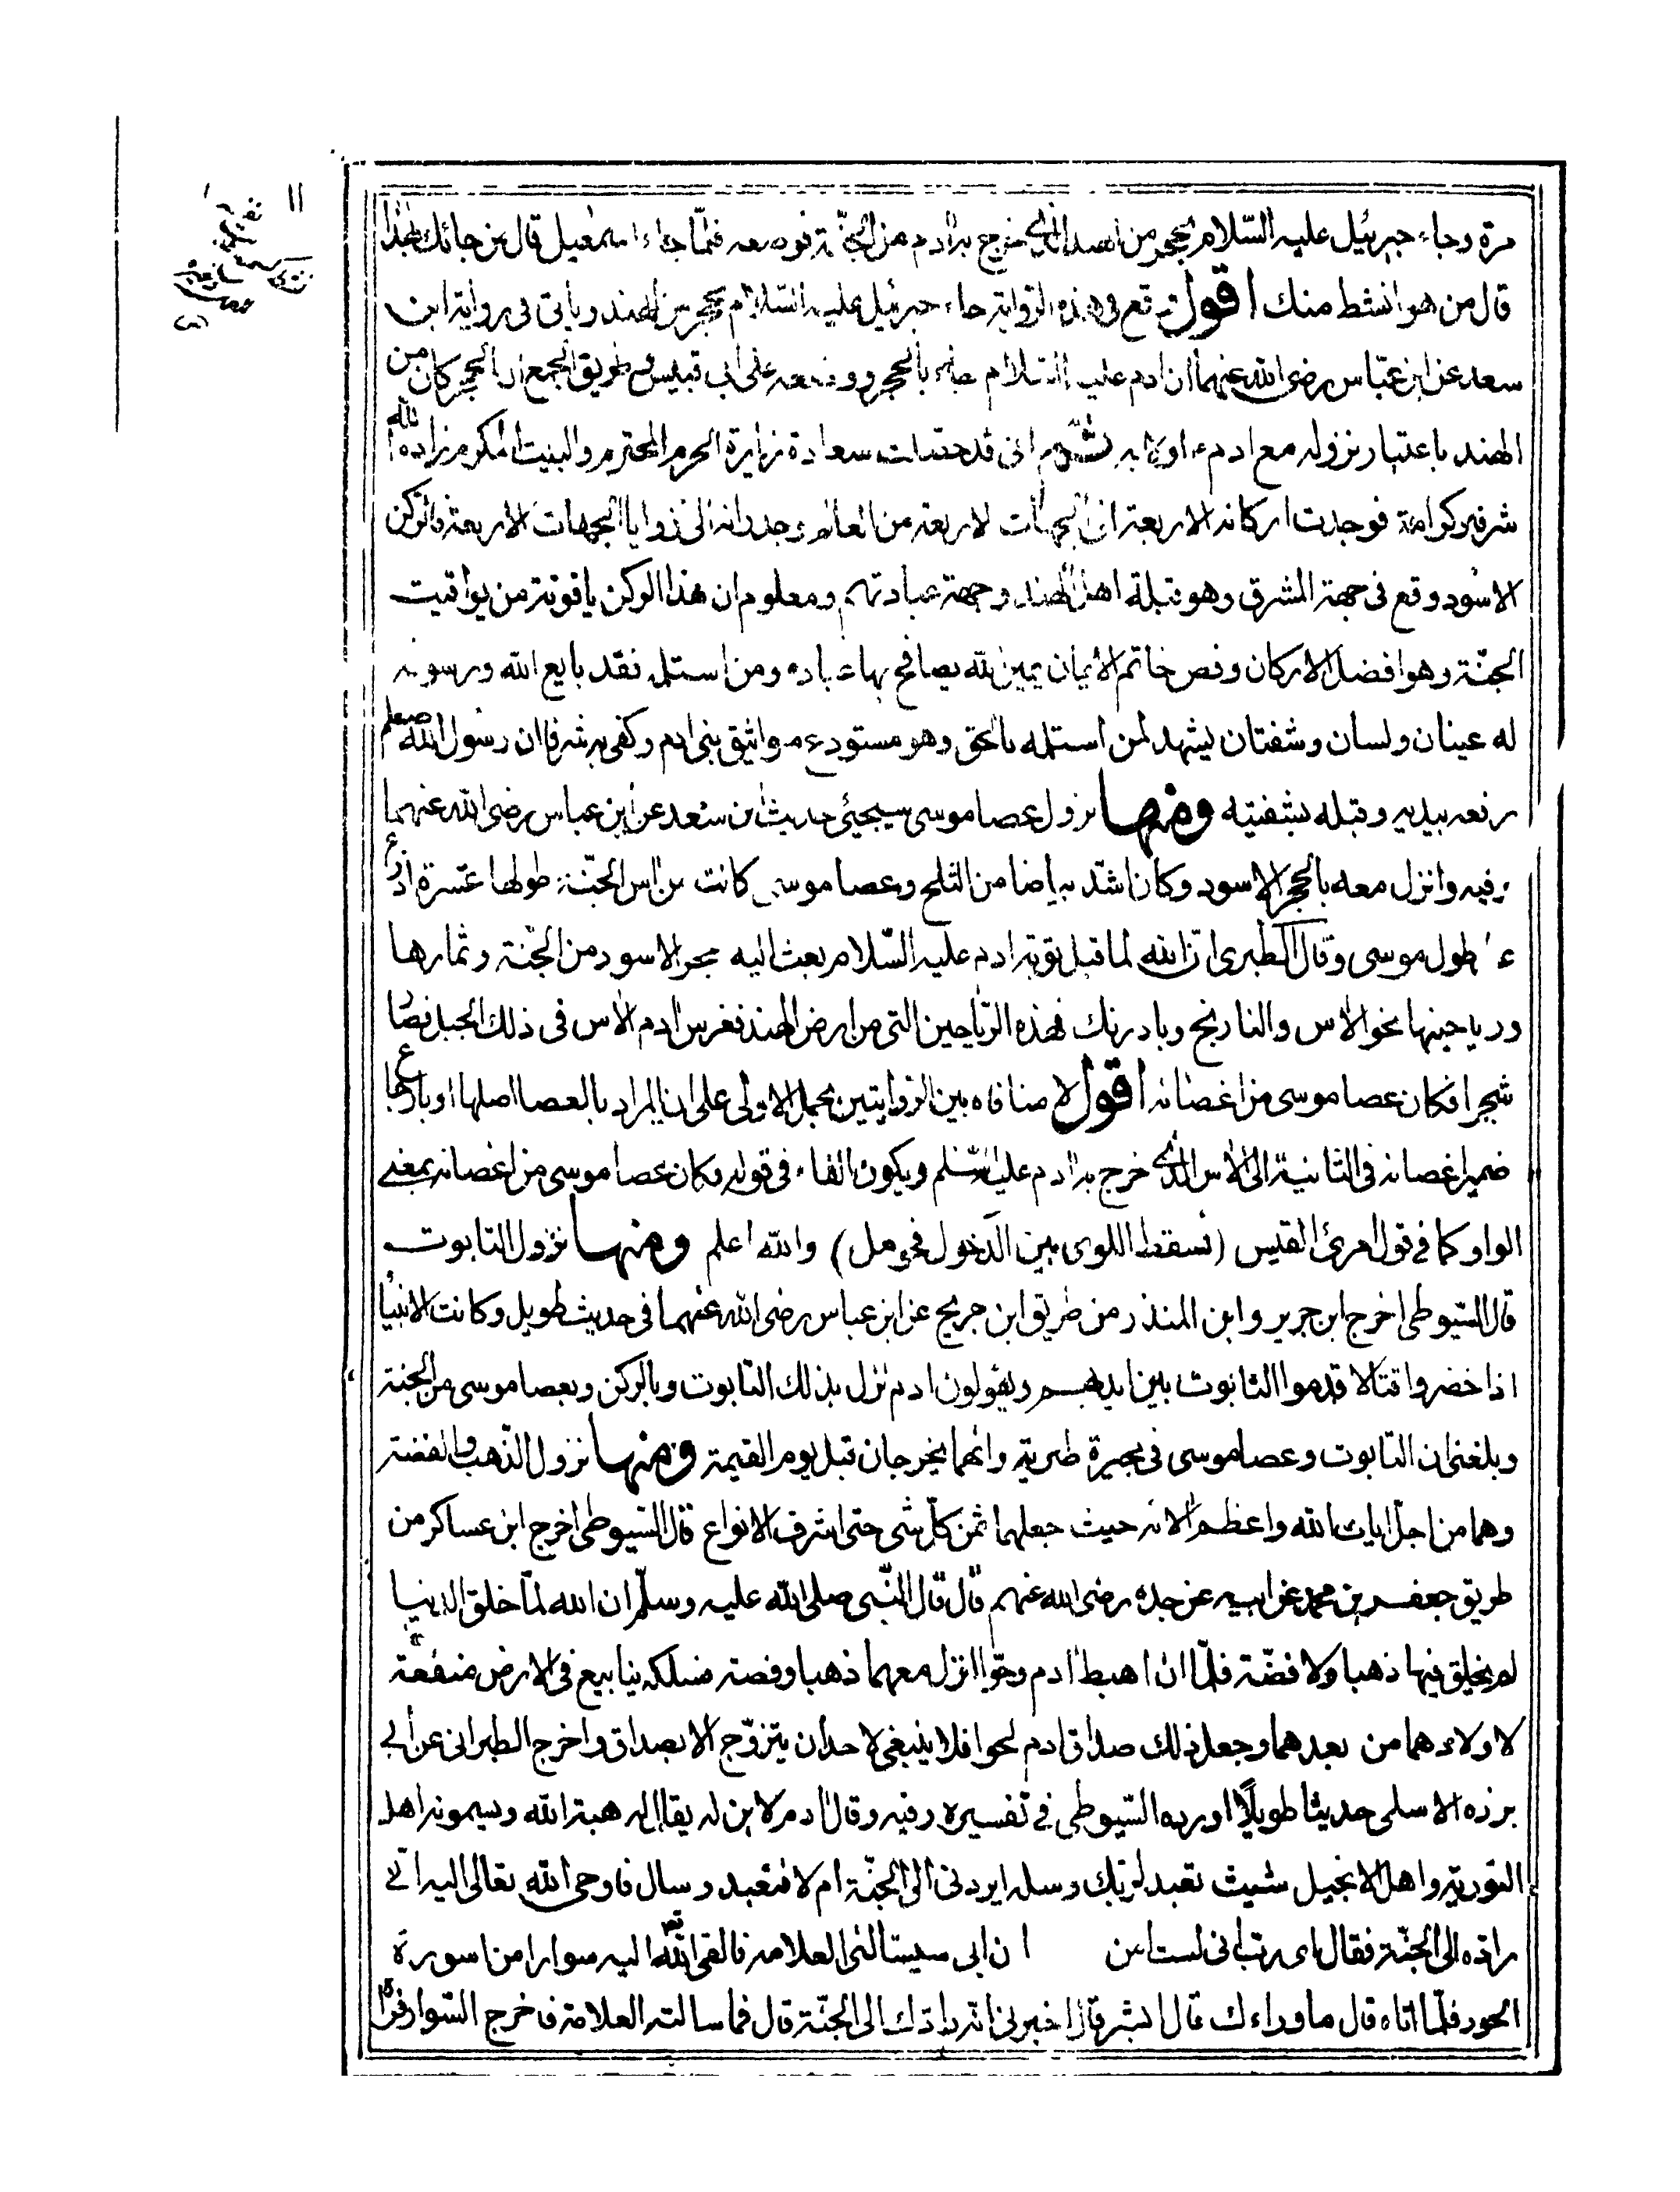 مرة وجاء جبرئيل عليه السّلام بحجر من الهند الذى خرج به ادم من الجنّة فوضعه فلمّا جاء اسمعيل قال من جائك بهذا
قال من هو انشط منك اقول وقع فى هذه الرواية جاء جبرئيل عليه السّلام بحجر من الهند وياتى فى رواية ابن
سعد عن ابن عبّاس رضى الله عنهما ان ادم عليه السّلام جاء بالحجر ووضعه على ابى قبيس و طريق الجمع ان الحجر كان من
الهند باعتبار نزوله مع ادم ع اولا به ثم انى قد حصلت سعادة زيارة الحرم المحترم والبيت المكرم زاده الله
شرفا وكرامة فوجدت اركانه الاربعة الى الجهات الاربعة من العالم وجدرانه الى زوايا الجهات الاربعة فالركن
الاسود وقع فى جهة المشرق وهو قبلة اهل الهند وجهة عبادتهم ومعلوم ان هذا الركن ياقوتة من يواقيت
الجنّة وهو افضل الاركان وفص خاتم الايمان يمين الله يصافح بها عباده ومن استلمه فقد بايع الله ورسوله
له عينان ولسان وشفتان ليشهد لمن استلمه بالحق وهو مستودع مواثيق بنى ادم وكفى به شرفا ان رسول الله صلعم
رفعه بيديه وقبله بشفتيه ومنها نزول عصا موسى سيجئ حديث ابن سعد عن ابن عباس رضى الله عنهما
وفيه وانزل معه بالحجر الاسود وكان اشدّ بياضا من الثلج وعصا موسى كانت من اس الجنّة طولها عشرة اذرع
ء طول موسى وقال الطبرى انّ الله لما قبل توبة ادم عليه السّلام بعث اليه بحجر الاسود من الجنّة وثمارها
ورياحينها نحو الاس والنارنج وبادرنك فهذه الرّياحين التى من ارض الهند فغرس ادم الاس فى ذلك الجبل فصار
شجرا فكان عصا موسى من اغصانه اقول لا منافاه بين الروايتين يحمل الاولى على ان المراد بالعصا اصلها او بارجاع
ضمير اغصانه فى الثانية الى الاس الذى خرج به ادم عليه السّلم ويكون الفاء فى قوله فكان عصا موسى من اغصانه بمعنى
الواو كما فى قول امرئ القيس (بسقط اللوى بين الدخول فحومل) والله اعلم ومنها نزول التابوت
قال السّيوطى اخرج ابن جرير وابن المنذر من طريق ابن جريج عن ابن عباس رضى الله عنهما فى حديث طويل وكانت الانبيا
اذا حضروا قتالا قدموا التابوت بين ايديهم ويقولون ادم نزل بذلك التابوت وبالركن وبعصا موسى من الجنة
وبلغنى ان التابوت وعصا موسى فى بحيرة طبرية وانهما يخرجان قبل يوم القيمة ومنها نزول الذّهب والفضة
وهما من اجل ايات الله واعظم الائه حيث جعلهما ثمن كلّ شى حتى اشرف الانواع قال السّيوطى اخرج ابن عساكر من
طريق جعفر بن محمد عن ابيه عن جده رضى الله عنهم قال قال النّبى صلى الله عليه وسلّم ان الله لمّا خلق الدنيا
لم يخلق فيها ذهبا ولا فضّة فلمّا ان اهبط ادم وحوّا انزل معهما ذهبا وفضة فسلكه ينابيع فى الارض منفعة
لاولادهما من بعدهما وجعل ذلك صداق ادم لحوا فلا ينبغى لاحد ان يتزوّج الا بصداق واخرج الطبرانى عن ابى
برزه الاسلمى حديثا طويلا اورده السّيوطى فى تفسيره وفيه وقال ادم لابن له يقال له هبة الله ويسمونه اهل
التورية واهل الانجيل شيث تعبد لربك وسله ايردنى الى الجنّة ام لا فتعبد وسال فاوحى الله تعالى اليه انى
رادّه الى الجنّة فقال اى رب انى لست امن ان ابى سيسالنى العلامة فالقى الله اليه سوارا من اسورة
الحور فلمّا اتاه قال ما وراءك قال ابشر قال اخبرنى انه رادّك الى الجنّة قال فما سالته العلامة فاخرج السّوار فراه